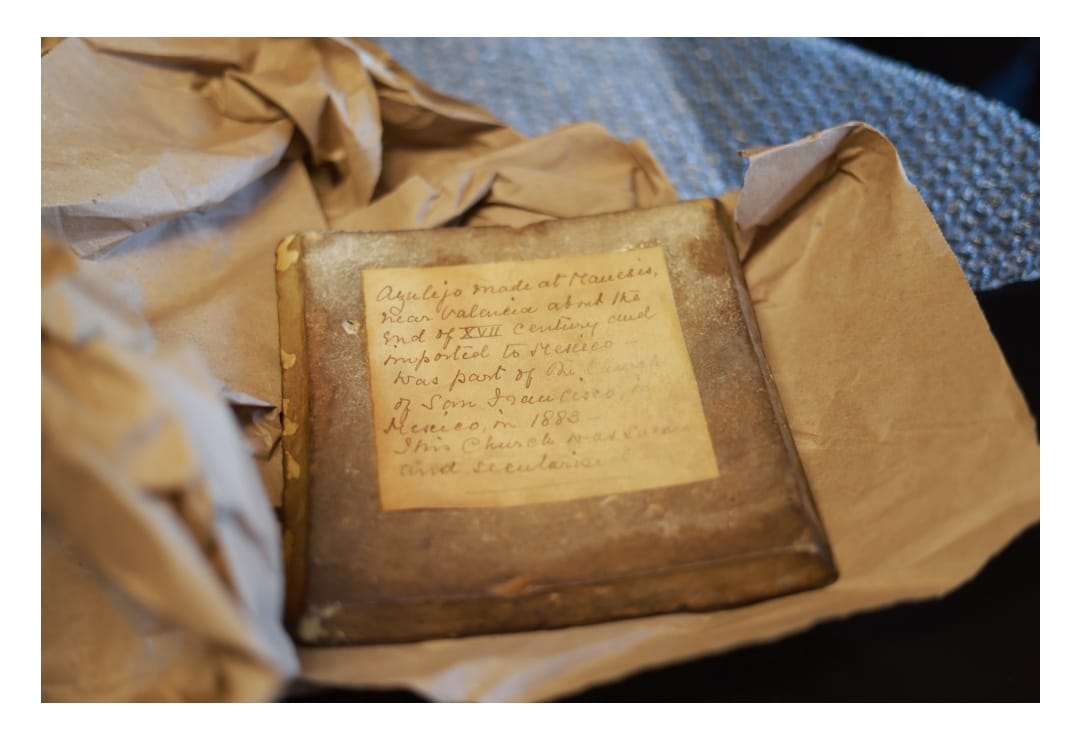 Azulejo made at Manesis,
near Valencia about the
end of XVII century and
imported to Mexico —
was part of the Church
of San Francisco, in
Mexico, in 1883 —
This Church was
and secularised